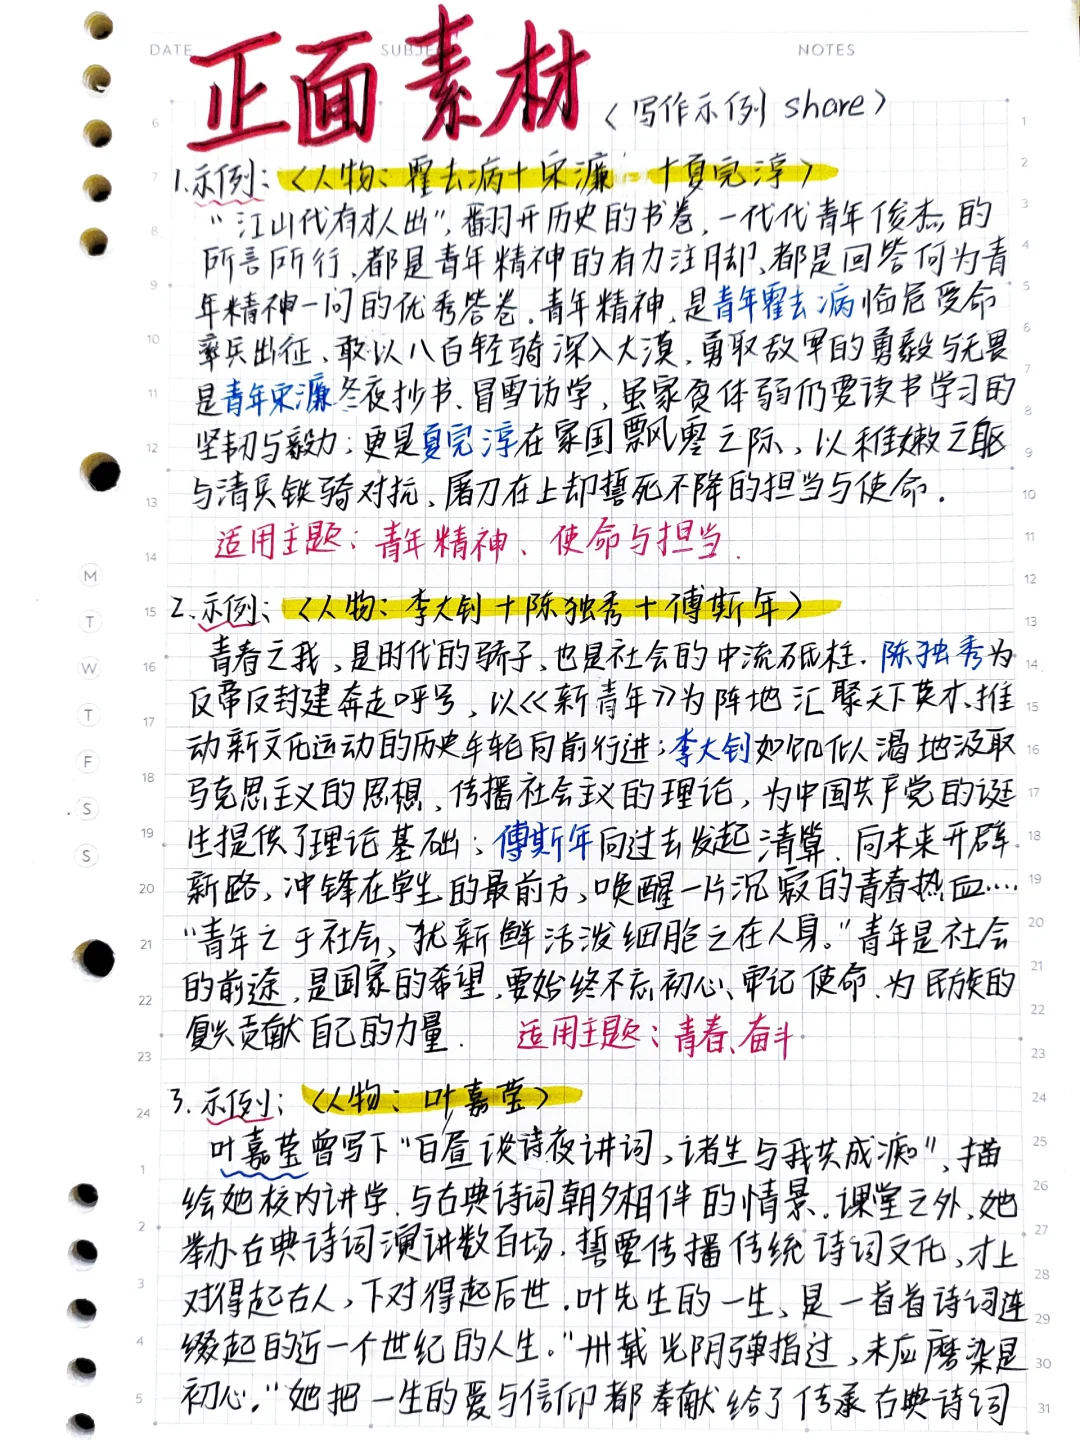 DATE SUBJECT NOTES
正面素材
〈写作示例 share〉
1.示例：〈人物：霍去病+宋濂+夏完淳〉
“江山代有才人出”，翻开历史的书卷，一代代青年俊杰的
所言所行，都是青年精神的有力注脚、都是回答何为青
年精神一问的优秀答卷。青年精神，是青年霍去病临危受命
率兵出征、敢以八百轻骑深入大漠，勇取敌军的勇毅与无畏
是青年宋濂冬夜抄书、冒雪访学，虽家贫体弱仍要读书学习的
坚韧与毅力；更是夏完淳在家国飘零之际、以稚嫩之躯
与清兵铁骑对抗、屠刀在上却誓死不降的担当与使命。
适用主题：青年精神、使命与担当.
2.示例：〈人物：李大钊+陈独秀+傅斯年〉
青春之我，是时代的骄子，也是社会的中流砥柱.陈独秀为
反帝反封建奔走呼号，以《新青年》为阵地汇聚天下英才、推
动新文化运动的历史车轮向前行进；李大钊如饥似渴地汲取
马克思主义的思想，传播社会主义的理论，为中国共产党的诞
生提供了理论基础；傅斯年向过去发起清算，向未来开辟
新路，冲锋在学生的最前方，唤醒一片沉寂的青春热血....
“青年之于社会，犹新鲜活泼细胞之在人身。”青年是社会
的前途，是国家的希望，要始终不忘初心、牢记使命、为民族的
复兴贡献自己的力量. 适用主题：青春、奋斗
3.示例：〈人物：叶嘉莹〉
叶嘉莹曾写下“白昼谈诗夜讲词，诸生与我共成痴”，描
绘她校内讲学、与古典诗词朝夕相伴的情景.课堂之外，她
举办古典诗词演讲数百场.誓要传播传统诗词文化，才上
对得起古人，下对得起后世.叶先生的一生，是一首首诗词连
缀起的近一个世纪的人生。“卅载光阴弹指过，未应磨染是
初心。”她把一生的爱与信仰都奉献给了传承古典诗词